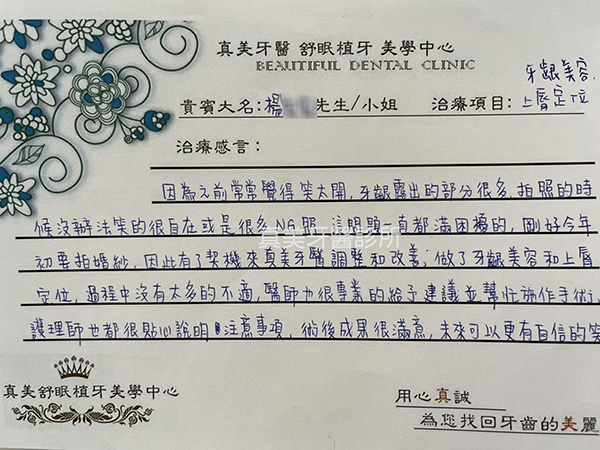 真美牙醫 舒眠植牙 美學中心
BEAUTIFUL DENTAL CLINIC
牙齦美容.
貴賓大名:楊 先生/小姐 治療項目:上脣定位
治療感言:
因為之前常常覺得笑太開,牙齦露出的部分很多,拍照的時
候沒辦法笑的很自在或是很多NG照,這問題一直都滿困擾的,剛好今年
初要拍婚紗,因此有了契機來真美牙醫調整和改善;做了牙齦美容和上脣
定位,過程中沒有太多的不適,醫師也很專業的給予建議並幫忙施作手術;
護理師也都很貼心說明注意事項,術後成果很滿意,未來可以更有自信的笑
真美牙醫診所
真美舒眠植牙美學中心
用心真誠
為您找回牙齒的美麗